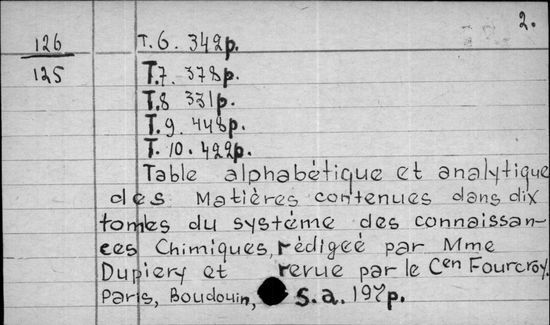 2.
126
125
T. 6. 342p.
T. 7. 378p.
T. 8 331p.
T. 9. 448p.
T. 10. 422p.
Table alphabétique et analytique
des Matières contenues dans dix
tomes du système des connaissan-
ces Chimiques, rédigeé par Mme
Dupiery et revue par le Cen Fourcroy.
Paris, Boudouin, s.a. 197p.